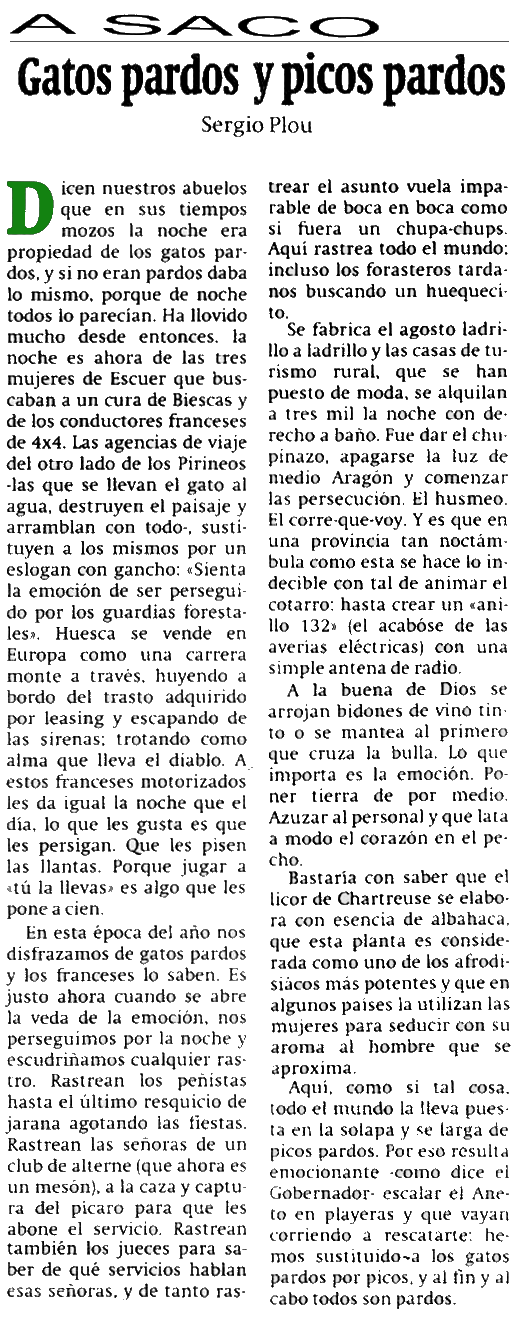 A SACO
Gatos pardos y picos pardos
Sergio Plou
Dicen nuestros abuelos
que en sus tiempos
mozos la noche era
propiedad de los gatos par-
dos, y si no eran pardos daba
lo mismo, porque de noche
todos lo parecían. Ha llovido
mucho desde entonces. la
noche es ahora de las tres
mujeres de Escuer que bus-
caban a un cura de Biescas y
de los conductores franceses
de 4x4. Las agencias de viaje
del otro lado de los Pirineos
-las que se llevan el gato al
agua, destruyen el paisaje y
arramblan con todo-, susti-
tuyen a los mismos por un
eslogan con gancho: «Sienta
la emoción de ser persegui-
do por los guardias foresta-
les». Huesca se vende en
Europa como una carrera
monte a través, huyendo a
bordo del trasto adquirido
por leasing y escapando de
las sirenas; trotando como
alma que lleva el diablo. A
estos franceses motorizados
les da igual la noche que el
día, lo que les gusta es que
les persigan. Que les pisen
las llantas. Porque jugar a
«tú la llevas» es algo que les
pone a cien.
En esta época del año nos
disfrazamos de gatos pardos
y los franceses lo saben. Es
justo ahora cuando se abre
la veda de la emoción, nos
perseguimos por la noche y
escudriñamos cualquier ras-
tro. Rastrean los peñistas
hasta el último resquicio de
jarana agotando las fiestas.
Rastrean las señoras de un
club de alterne (que ahora es
un mesón), a la caza y captu-
ra del pícaro para que les
abone el servicio. Rastrean
también los jueces para sa-
ber de qué servicios hablan
esas señoras, y de tanto ras-
trear el asunto vuela impa-
rable de boca en boca como
si fuera un chupa-chups.
Aquí rastrea todo el mundo;
incluso los forasteros tarda-
nos buscando un huequeci-
to.
Se fabrica el agosto ladri-
llo a ladrillo y las casas de tu-
rismo rural, que se han
puesto de moda, se alquilan
a tres mil la noche con de-
recho a baño. Fue dar el chu-
pinazo, apagarse la luz de
medio Aragón y comenzar
las persecución. El husmeo.
El corre-que-voy. Y es que en
una provincia tan noctám-
bula como esta se hace lo in-
decible con tal de animar el
cotarro: hasta crear un «ani-
llo 132» (el acabóse de las
averias eléctricas) con una
simple antena de radio.
A la buena de Dios se
arrojan bidones de vino tin-
to o se mantea al primero
que cruza la bulla. Lo que
importa es la emoción. Po-
ner tierra de por medio.
Azuzar al personal y que lata
a modo el corazón en el pe-
cho.
Bastaría con saber que el
licor de Chartreuse se elabo-
ra con esencia de albahaca,
que esta planta es conside-
rada como uno de los afrodi-
siácos más potentes y que en
algunos países la utilizan las
mujeres para seducir con su
aroma al hombre que se
aproxima.
Aquí, como si tal cosa,
todo el mundo la lleva pues-
ta en la solapa y se larga de
picos pardos. Por eso resulta
emocionante -como dice el
Gobernador- escalar el Ane-
to en playeras y que vayan
corriendo a rescatarte: he-
mos sustituido a los gatos
pardos por picos, y al fin y al
cabo todos son pardos.